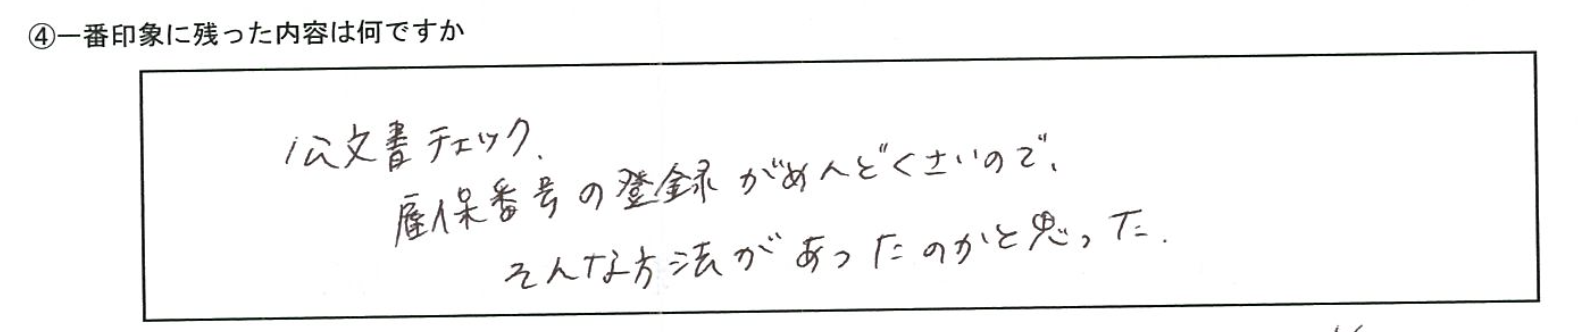 ④一番印象に残った内容は何ですか
公文書チェック.
雇保番号の登録がめんどくさいので、
そんな方法があったのかと思った.